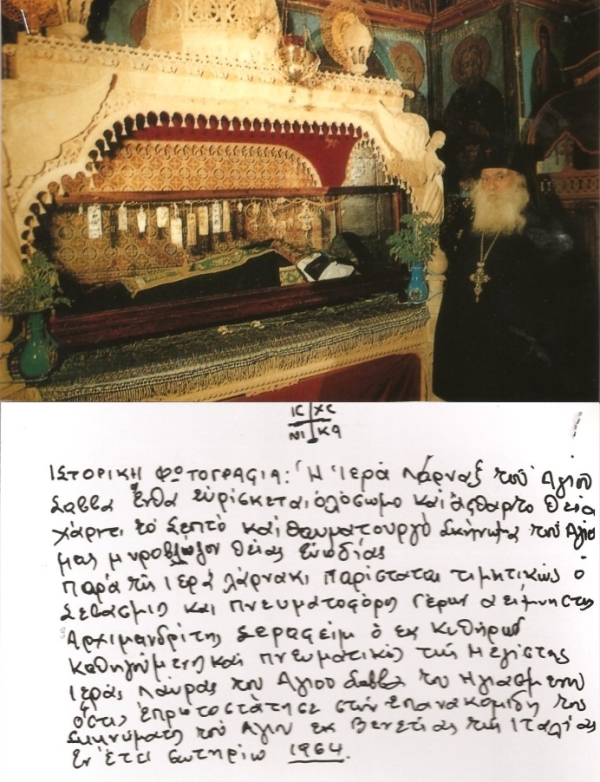 IC XC
NI KA
ΙΣΤΟΡΙΚΗ ΦΩΤΟΓΡΑΦΙΑ: Ἡ Ἱερά Λάρναξ τοῦ Ἁγίου
Σάββα ἔνθα εὑρίσκεται ὁλόσωμο καί ἄφθαρτο Θεία
χάριτι τό Σεπτό καί θαυματουργό Σκήνωμα τοῦ Ἁγίου
μας μυροβλύζον θείας Εὐωδίας
Παρά τῆ Ἱερά Λάρνακι παρίσταται τιμητικῶς ὁ
Σεβάσμιος και Πνευματοφόρος Γέρων ἀείμνηστος
Ἀρχιμανδρίτης Σεραφείμ ὁ ἐκ Κυθήρων
Καθηγούμενος και πνευματικός τῆς Μεγίστης
Ιεράς Λαύρας του Αγίου Σάββα του Ηγιασμένου
ὅστις ἐπρωτοστάτησε στήν ἐπανακομιδη του
Σκηνώματος τοῦ Ἁγίου ἐκ Βενετίας της Ιταλίας
Ἐν ἔτει σωτηρίω 1964.